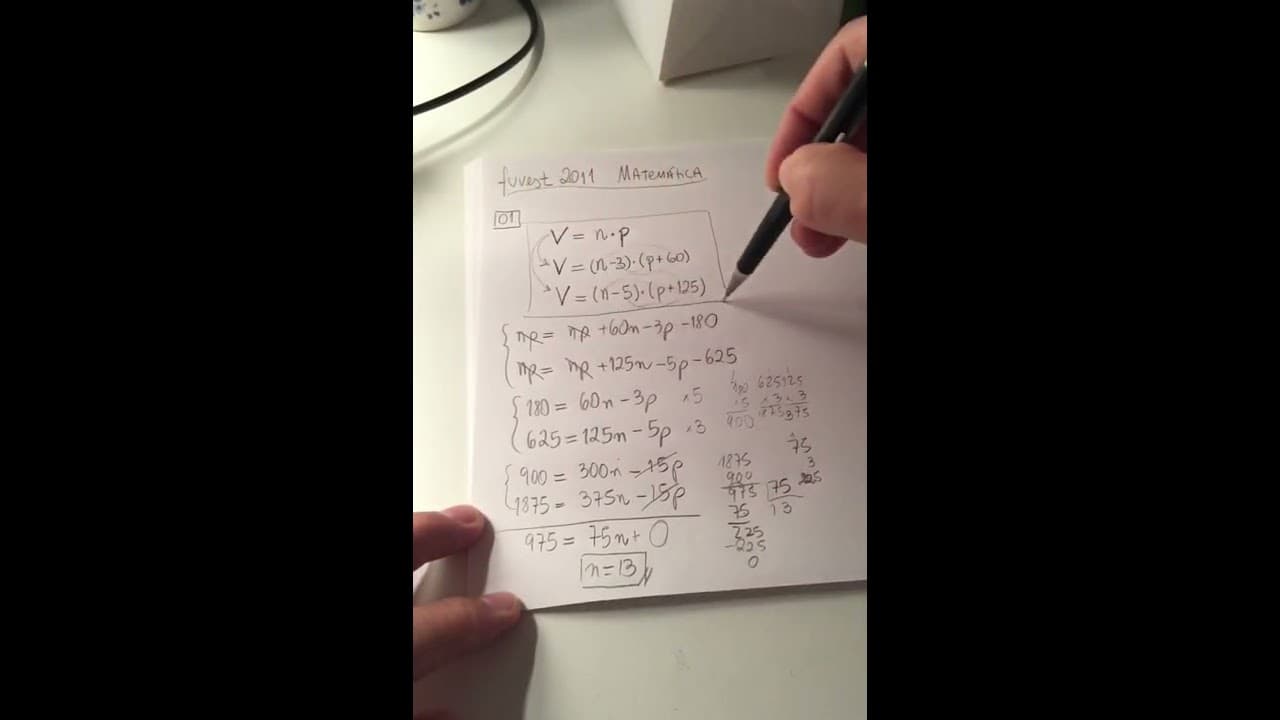 fuvest 2011 MATEMÁTICA
01
V = n·p
V = (n-3)·(p+60)
V = (n-5)·(p+125)
np = np +60n-3p-180
np = np +125n-5p-625
180 = 60n-3p ×5
625 = 125n-5p ×3
900 = 300n-15p
1875 = 375n-15p
975 = 75n+0
n=13
900
625
×3
1875
×3
375
1875
900
975
75
225
-225
0
75
13
75
3